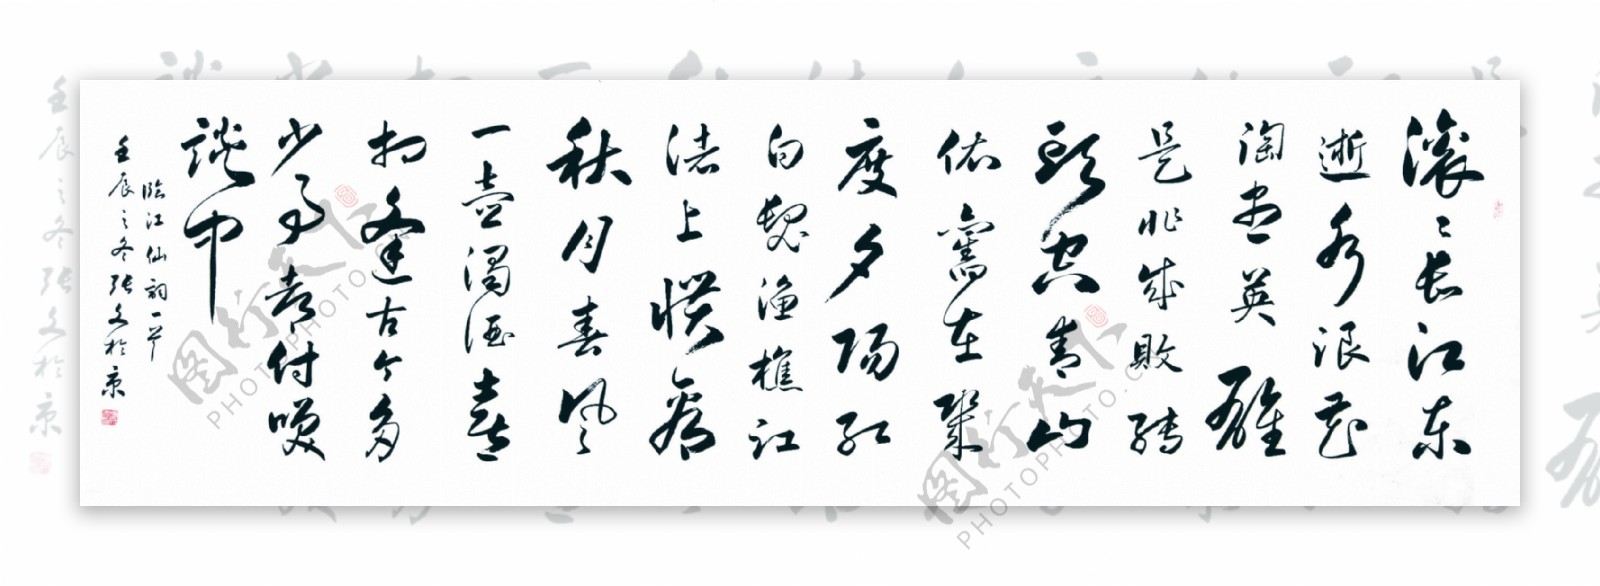 滚〻長江东
逝水浪花
淘尽英雄
是非成敗转
頭空青山
依舊在幾
度夕陽红
白髮渔樵江
渚上惯看
秋月春风
一壶濁酒喜
相逢古今多
少事都付笑
谈中
临江仙词一首
壬辰之冬张文於京
图行天下
PHOTOPHOTO.CN
图行天下
PHOTOPHOTO.CN